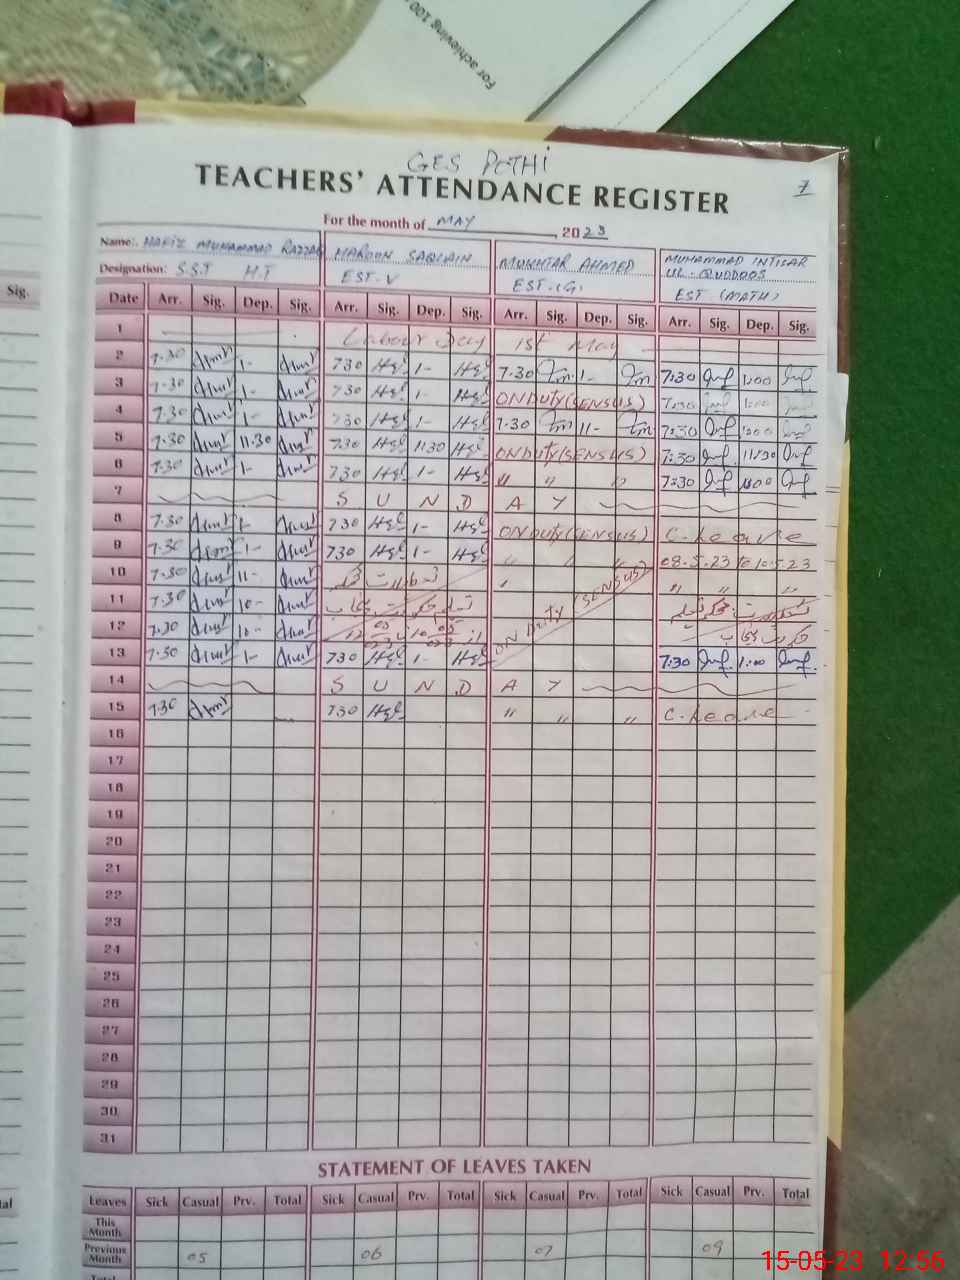 For achieving 100
GES POTHI
7
TEACHERS' ATTENDANCE REGISTER
For the month of MAY 2023
Name: HAFIZ MUHAMMAD RAZZAQ HAROON SAQLAIN MUKHTAR AHMED MUHAMMAD INTISAR UL-QUDDOOS
Designation: S.S.T H.T EST-V EST.(G) EST (MATH)
Sig.
Date Arr. Sig. Dep. Sig. Arr. Sig. Dep. Sig. Arr. Sig. Dep. Sig. Arr. Sig. Dep. Sig.
1 Labour Day 1st May
2 7.30 1- 730 1- 7.30 1- 7:30 1:00
3 7.30 1- 730 1- ON DUTY (SENSUS) 7:30 1:00
4 7.30 1- 730 1- 7.30 11- 7:30 1:00
5 7.30 11.30 7.30 11.30 ON DUTY (SENSUS) 7:30 11:30
6 7.30 1- 730 1- " " " 7:30 1:00
7 S U N D A Y
8 7.30 1- 730 1- ON DUTY (SENSUS) C. Leave
9 7.30 1- 730 1- " " " 08.5.23 to 10.5.23
10 7.30 11- " " " "
11 7.30 10- ON DUTY (SENSUS)
12 7.30 10-
13 7.30 1- 730 1- 7:30 1:00
14 S U N D A Y
15 7.30 730 " " " C. Leave
16
17
18
19
20
21
22
23
24
25
26
27
28
29
30
31
STATEMENT OF LEAVES TAKEN
Leaves Sick Casual Prv. Total Sick Casual Prv. Total Sick Casual Prv. Total Sick Casual Prv. Total
This Month
Previous Month 05 06 07 09
Total
15-05-23 12:56